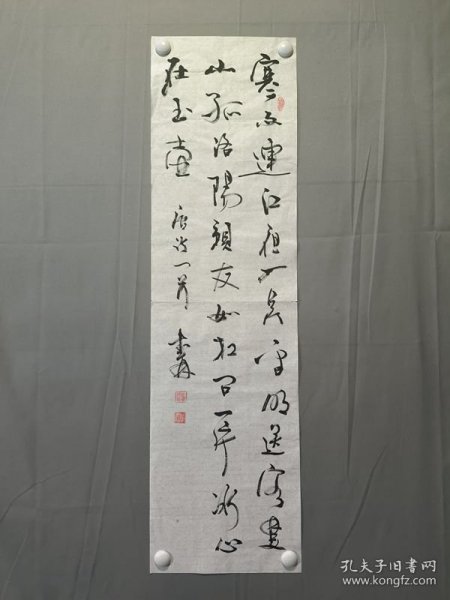 寒雨連江夜入吳平明送客楚
山孤洛陽親友如相問一片冰心
在玉壺
唐诗一首
孔夫子旧书网
www.kongfz.com